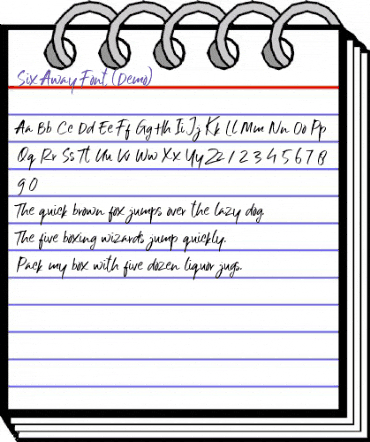 Six Away Font (Demo)
Aa Bb Cc Dd Ee Ff Gg Hh Ii Jj Kk Ll Mm Nn Oo Pp
Qq Rr Ss Tt Uu Vv Ww Xx Yy Zz 1 2 3 4 5 6 7 8
9 0
The quick brown fox jumps over the lazy dog.
The five boxing wizards jump quickly.
Pack my box with five dozen liquor jugs.